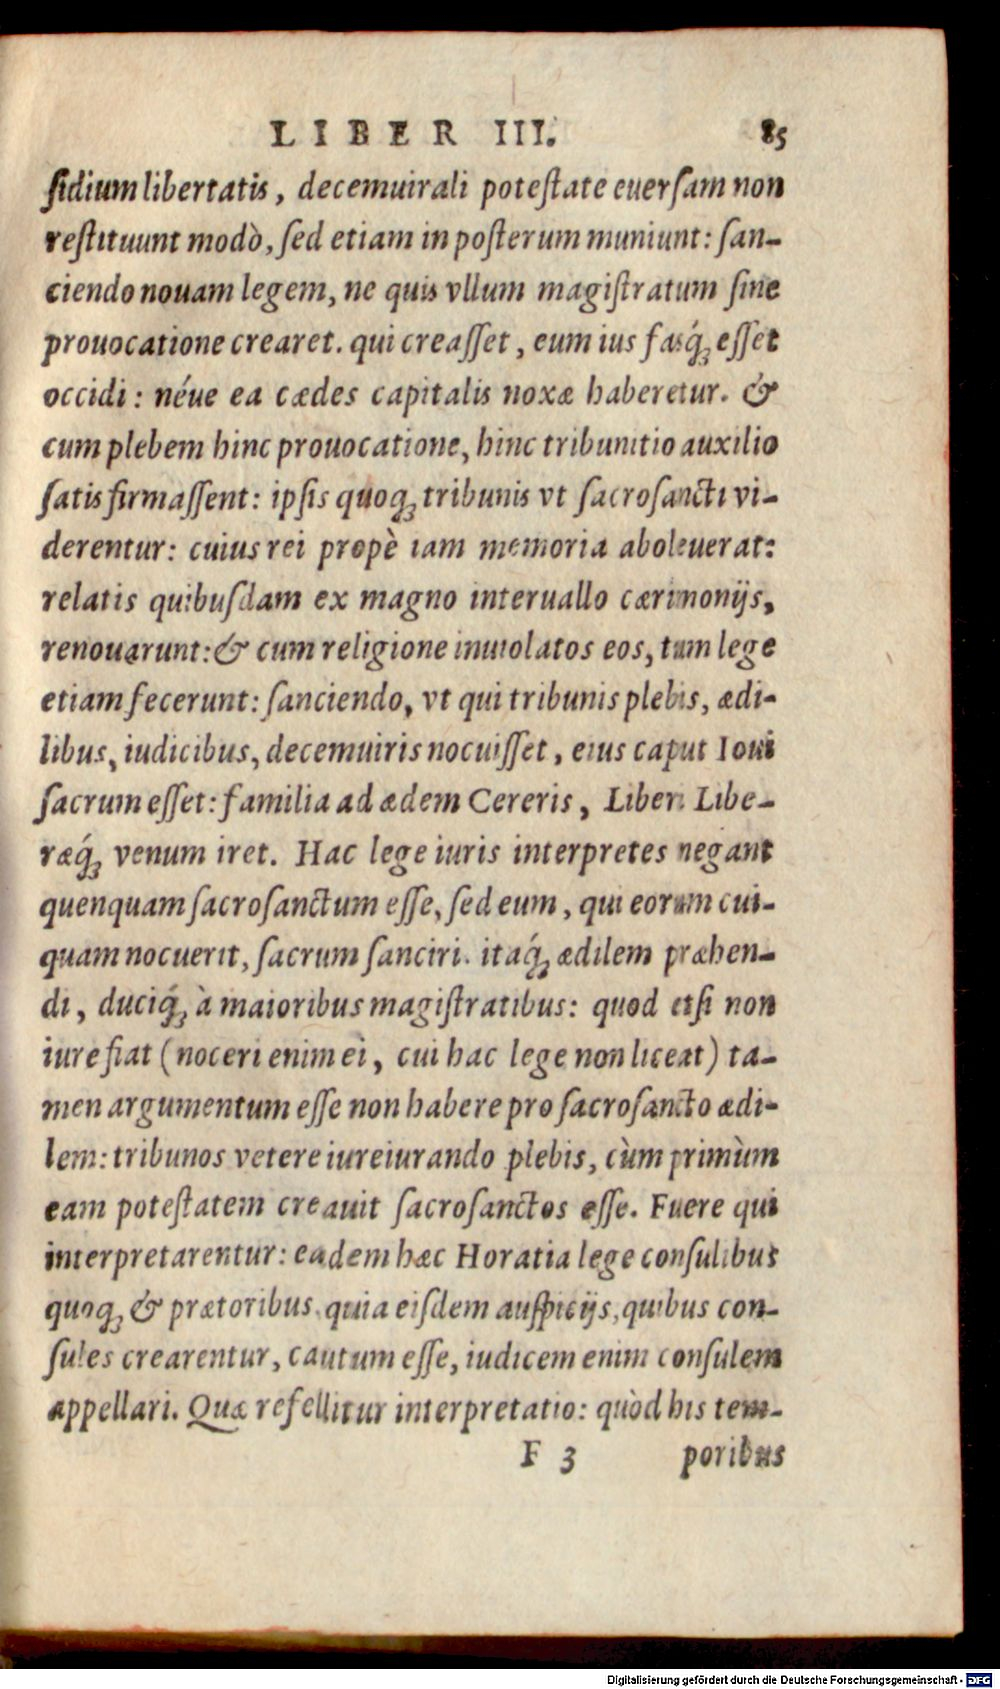 LIBER III. 85
ſidium libertatis, decemuirali poteſtate euerſam non
reſtituunt modò, ſed etiam in poſterum muniunt: ſan-
ciendo nouam legem, ne quis vllum magiſtratum ſine
prouocatione crearet. qui creaſſet, eum ius faſq́ꝫ eſſet
occidi: néue ea cædes capitalis noxæ haberetur. &
cum plebem hinc prouocatione, hinc tribunitio auxilio
ſatis firmaſſent: ipſis quoqꝫ tribunis vt ſacroſancti vi-
derentur: cuius rei propè iam memoria aboleuerat:
relatis quibuſdam ex magno interuallo cærimonijs,
renouarunt: & cum religione inuiolatos eos, tum lege
etiam fecerunt: ſanciendo, vt qui tribunis plebis, ædi-
libus, iudicibus, decemuiris nocuiſſet, eius caput Ioui
ſacrum eſſet: familia ad ædem Cereris, Liberi Libe-
ræq́ꝫ venum iret. Hac lege iuris interpretes negant
quenquam ſacroſanctum eſſe, ſed eum, qui eorum cui-
quam nocuerit, ſacrum ſanciri. itaq́ꝫ ædilem præhen-
di, duciq́ꝫ à maioribus magiſtratibus: quod etſi non
iure fiat (noceri enim ei, cui hac lege non liceat) ta-
men argumentum eſſe non habere pro ſacroſancto ædi-
lem: tribunos vetere iureiurando plebis, cùm primùm
eam poteſtatem creauit ſacroſanctos eſſe. Fuere qui
interpretarentur: eadem hæc Horatia lege conſulibus
quoqꝫ & prætoribus, quia eiſdem auſpicijs, quibus con-
ſules crearentur, cautum eſſe, iudicem enim conſulem
appellari. Quæ refellitur interpretatio: quòd his tem-
F 3 poribus
Digitalisierung gefördert durch die Deutsche Forschungsgemeinschaft - DFG